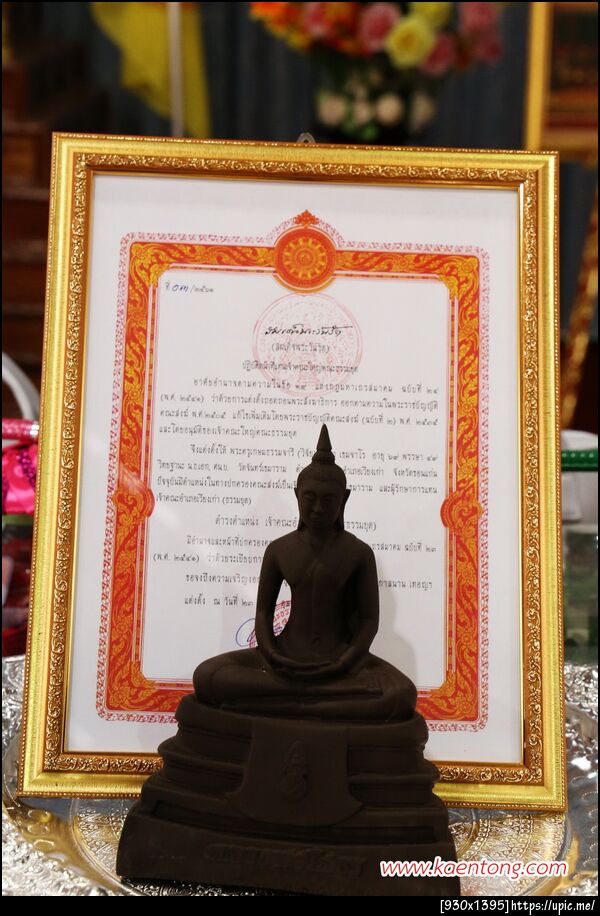 ที่ ๐๓/๒๕๖๑
สมเด็จพระวันรัต
(สมเด็จพระวันรัต)
ปฏิบัติหน้าที่แทนเจ้าคณะใหญ่คณะธรรมยุต
อาศัยอำนาจตามความในข้อ ๒๙ แห่งกฎมหาเถรสมาคม ฉบับที่ ๒๔
(พ.ศ. ๒๕๔๑) ว่าด้วยการแต่งตั้งถอดถอนพระสังฆาธิการ ออกตามความในพระราชบัญญัติ
คณะสงฆ์ พ.ศ. ๒๕๐๕ แก้ไขเพิ่มเติมโดยพระราชบัญญัติคณะสงฆ์ (ฉบับที่ ๒) พ.ศ. ๒๕๓๕
และโดยอนุมัติของเจ้าคณะใหญ่คณะธรรมยุต
จึงแต่งตั้งให้ พระครูเกษมธรรมจารี อายุ ๖๙ พรรษา ๔๙
วิทยฐานะ น.ธ.เอก, ศน.บ. วัดจันทร์เขมาราม อำเภอเวียงเก่า จังหวัดขอนแก่น
ปัจจุบันมีตำแหน่งในทางปกครองคณะสงฆ์เป็น และผู้รักษาการแทน
เจ้าคณะอำเภอเวียงเก่า (ธรรมยุต)
ดำรงตำแหน่ง เจ้าคณะอำเภอ ธรรมยุต)
มีอำนาจและหน้าที่ปกครองคณะ เถรสมาคม ฉบับที่ ๒๓
(พ.ศ. ๒๕๔๑) ว่าด้วยระเบียบการ
ขอจงถึงความเจริญงอก กาลนาน เทอญฯ
แต่งตั้ง ณ วันที่ ๒๓
www.kaentong.com
[930x1395]https://upic.me/